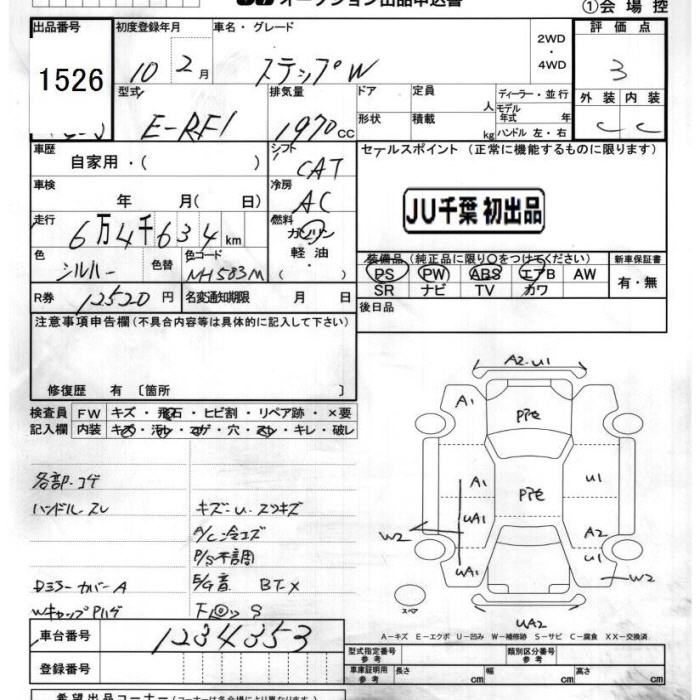 オークション出品申込書 ①会場控
出品番号 初度登録年月 車名・グレード 評価点
1526 10 2月 ステップW 2WD・4WD 3
型式 排気量 ドア 定員 人 ディーラー・並行 外装 内装
E-RF1 1970cc 形状 積載 kg モデル年式 年 ハンドル 左・右 C C
車歴 自家用・( ) シフト CAT セールスポイント (正常に機能するものに限ります)
車検 年 月( 日) 冷房 AC
JU千葉 初出品
走行 6万4千634km 燃料 ガソリン 軽油・
色 シルバー 色替 色コード NH583M 装備品 (純正品に限り○をつけてください) 新車保証書
PS PW ABS エアB AW 有・無
SR ナビ TV カワ
R券 12520円 名変通知期限 月 日 後日品
注意事項申告欄 (不具合内容等は具体的に記入して下さい)
修復歴 有 〔箇所 〕
検査員 FW キズ・飛石・ヒビ割・リペア跡・×要
記入欄 内装 キズ・汚レ・コゲ・穴・スレ・キレ・破レ
各部・コゲ
ハンドル・スレ キズ・U・スリキズ
A/C冷エズ
P/S不調
Dミラーカバー A E/G音 BT・X
車台番号 1234353
登録番号
A2・U1
A1 Pモ
A1 U1
UA1 Pモ
W2 A2
UA1 U1
W2
スペア
UA2
A-キズ E-エクボ U-凹み W-補修跡 S-サビ C-腐食 XX-交換済
型式指定番号 参考 類別区分番号 参考
車庫証明用 参考 長さ cm 幅 cm 高さ cm
希望出品コーナー